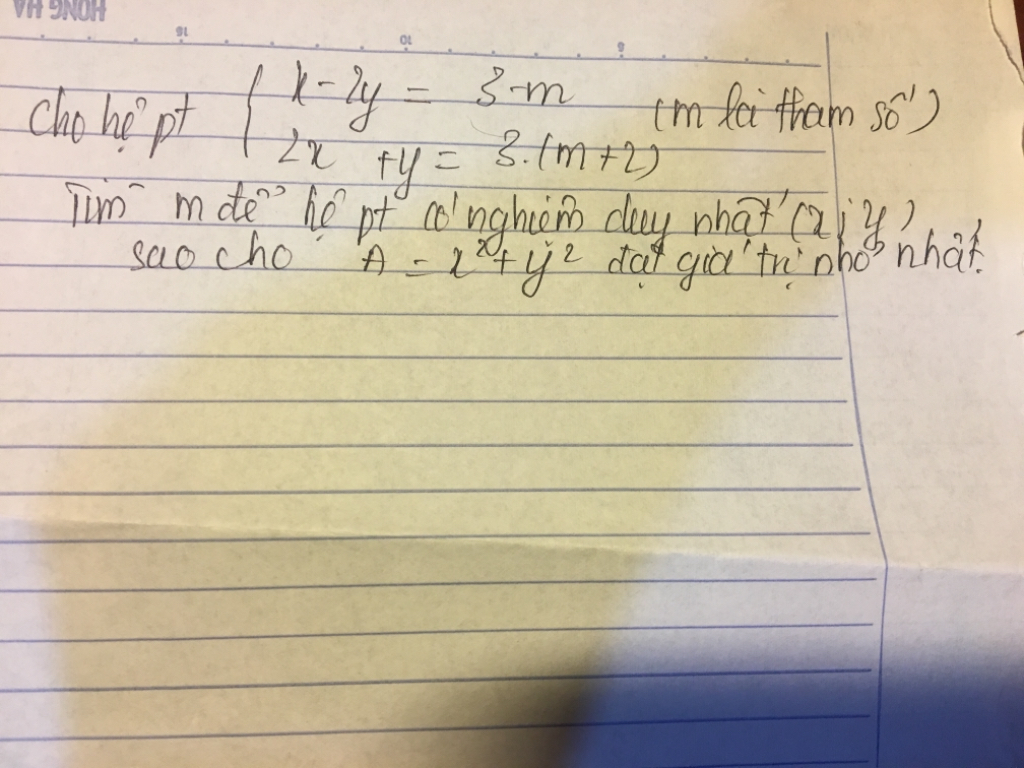 HONG HA
16 10 6
Cho hệ pt { x - 2y = 3-m (m là tham số)
2x + y = 3.(m+2)
Tìm m để hệ pt có nghiệm duy nhất (x; y)
sao cho A = x² + y² đạt giá trị nhỏ nhất.